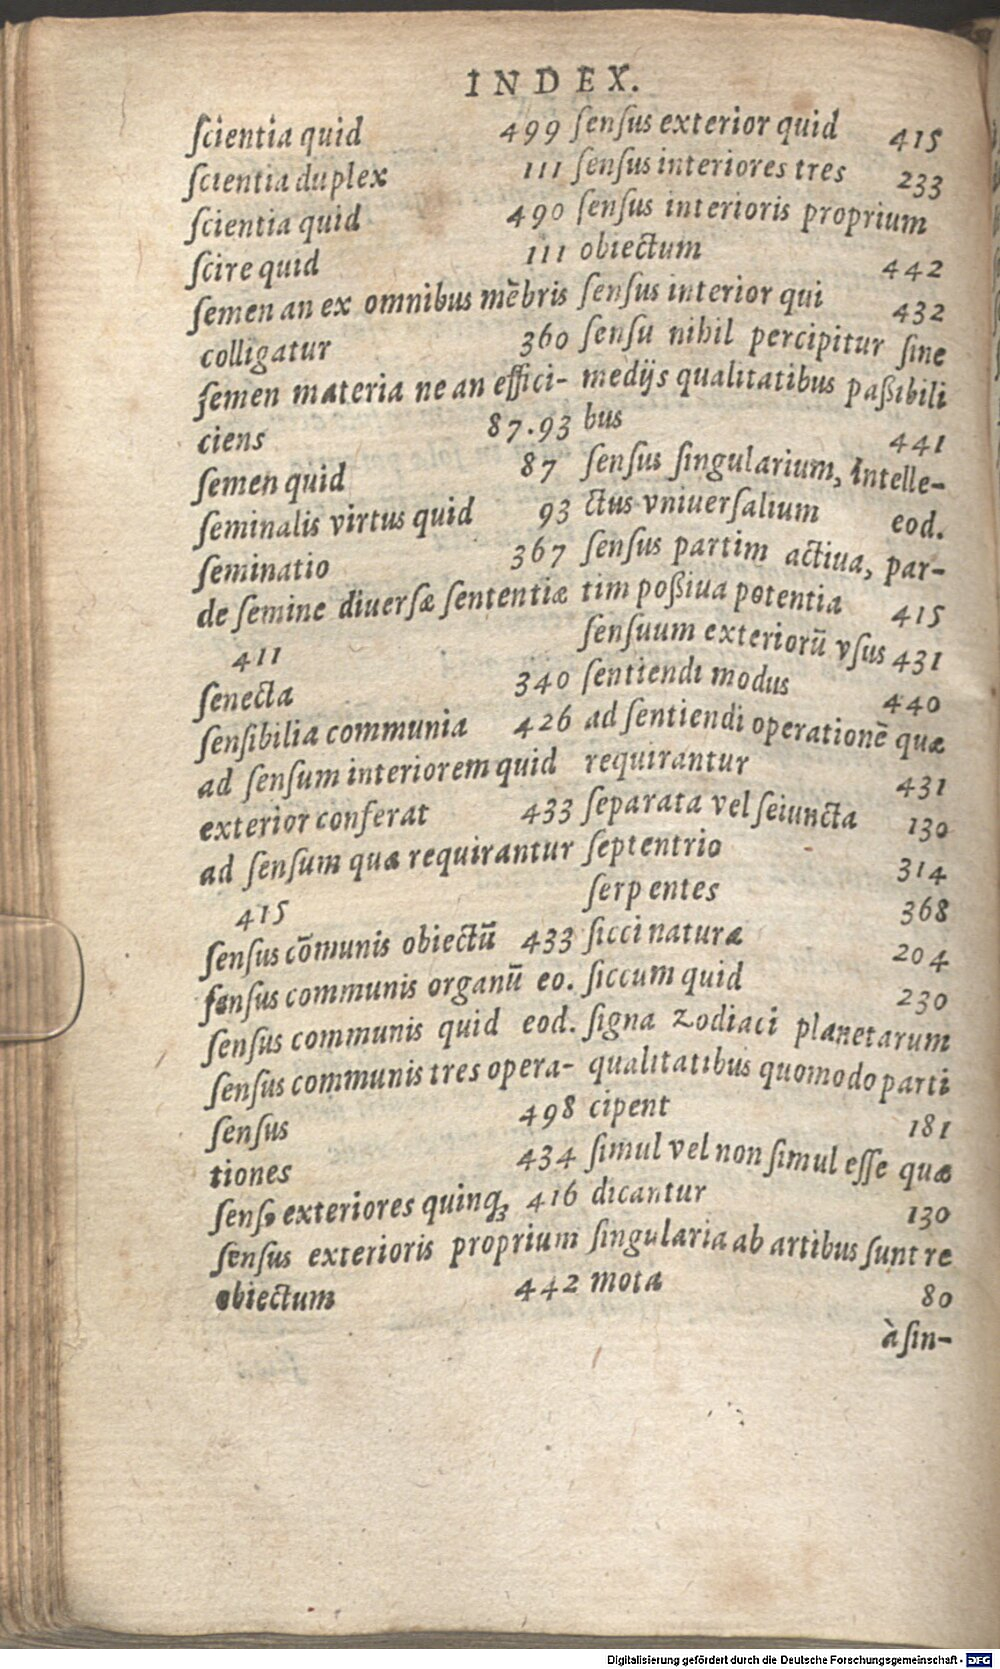 INDEX.
ſcientia quid 499
ſcientia duplex 111
ſcientia quid 490
ſcire quid 111
ſemen an ex omnibus mẽbris
colligatur 360
ſemen materia ne an effici-
ciens 87.93
ſemen quid 87
ſeminalis virtus quid 93
ſeminatio 367
de ſemine diuerſæ ſententiæ
411
ſenecta 340
ſenſibilia communia 426
ad ſenſum interiorem quid
exterior conferat 433
ad ſenſum quæ requirantur
415
ſenſus cõmunis obiectũ 433
ſenſus communis organũ eo.
ſenſus communis quid eod.
ſenſus communis tres opera-
ſenſus 498
tiones 434
ſenſꝰ exteriores quinqꝫ 416
ſenſus exterioris proprium
obiectum 442
ſenſus exterior quid 415
ſenſus interiores tres 233
ſenſus interioris proprium
obiectum 442
ſenſus interior qui 432
ſenſu nihil percipitur ſine
medijs qualitatibus paßibili
bus 441
ſenſus ſingularium, Intelle-
ctus vniuerſalium eod.
ſenſus partim actiua, par-
tim poßiua potentia 415
ſenſuum exteriorũ vſus 431
ſentiendi modus 440
ad ſentiendi operationẽ quæ
requirantur 431
ſeparata vel ſeiuncta 130
ſeptentrio 314
ſerpentes 368
ſicci naturæ 204
ſiccum quid 230
ſigna Zodiaci planetarum
qualitatibus quomodo parti
cipent 181
ſimul vel non ſimul eſſe quæ
dicantur 130
ſingularia ab artibus ſunt re
mota 80
à ſin-
Digitalisierung gefördert durch die Deutsche Forschungsgemeinschaft - DFG